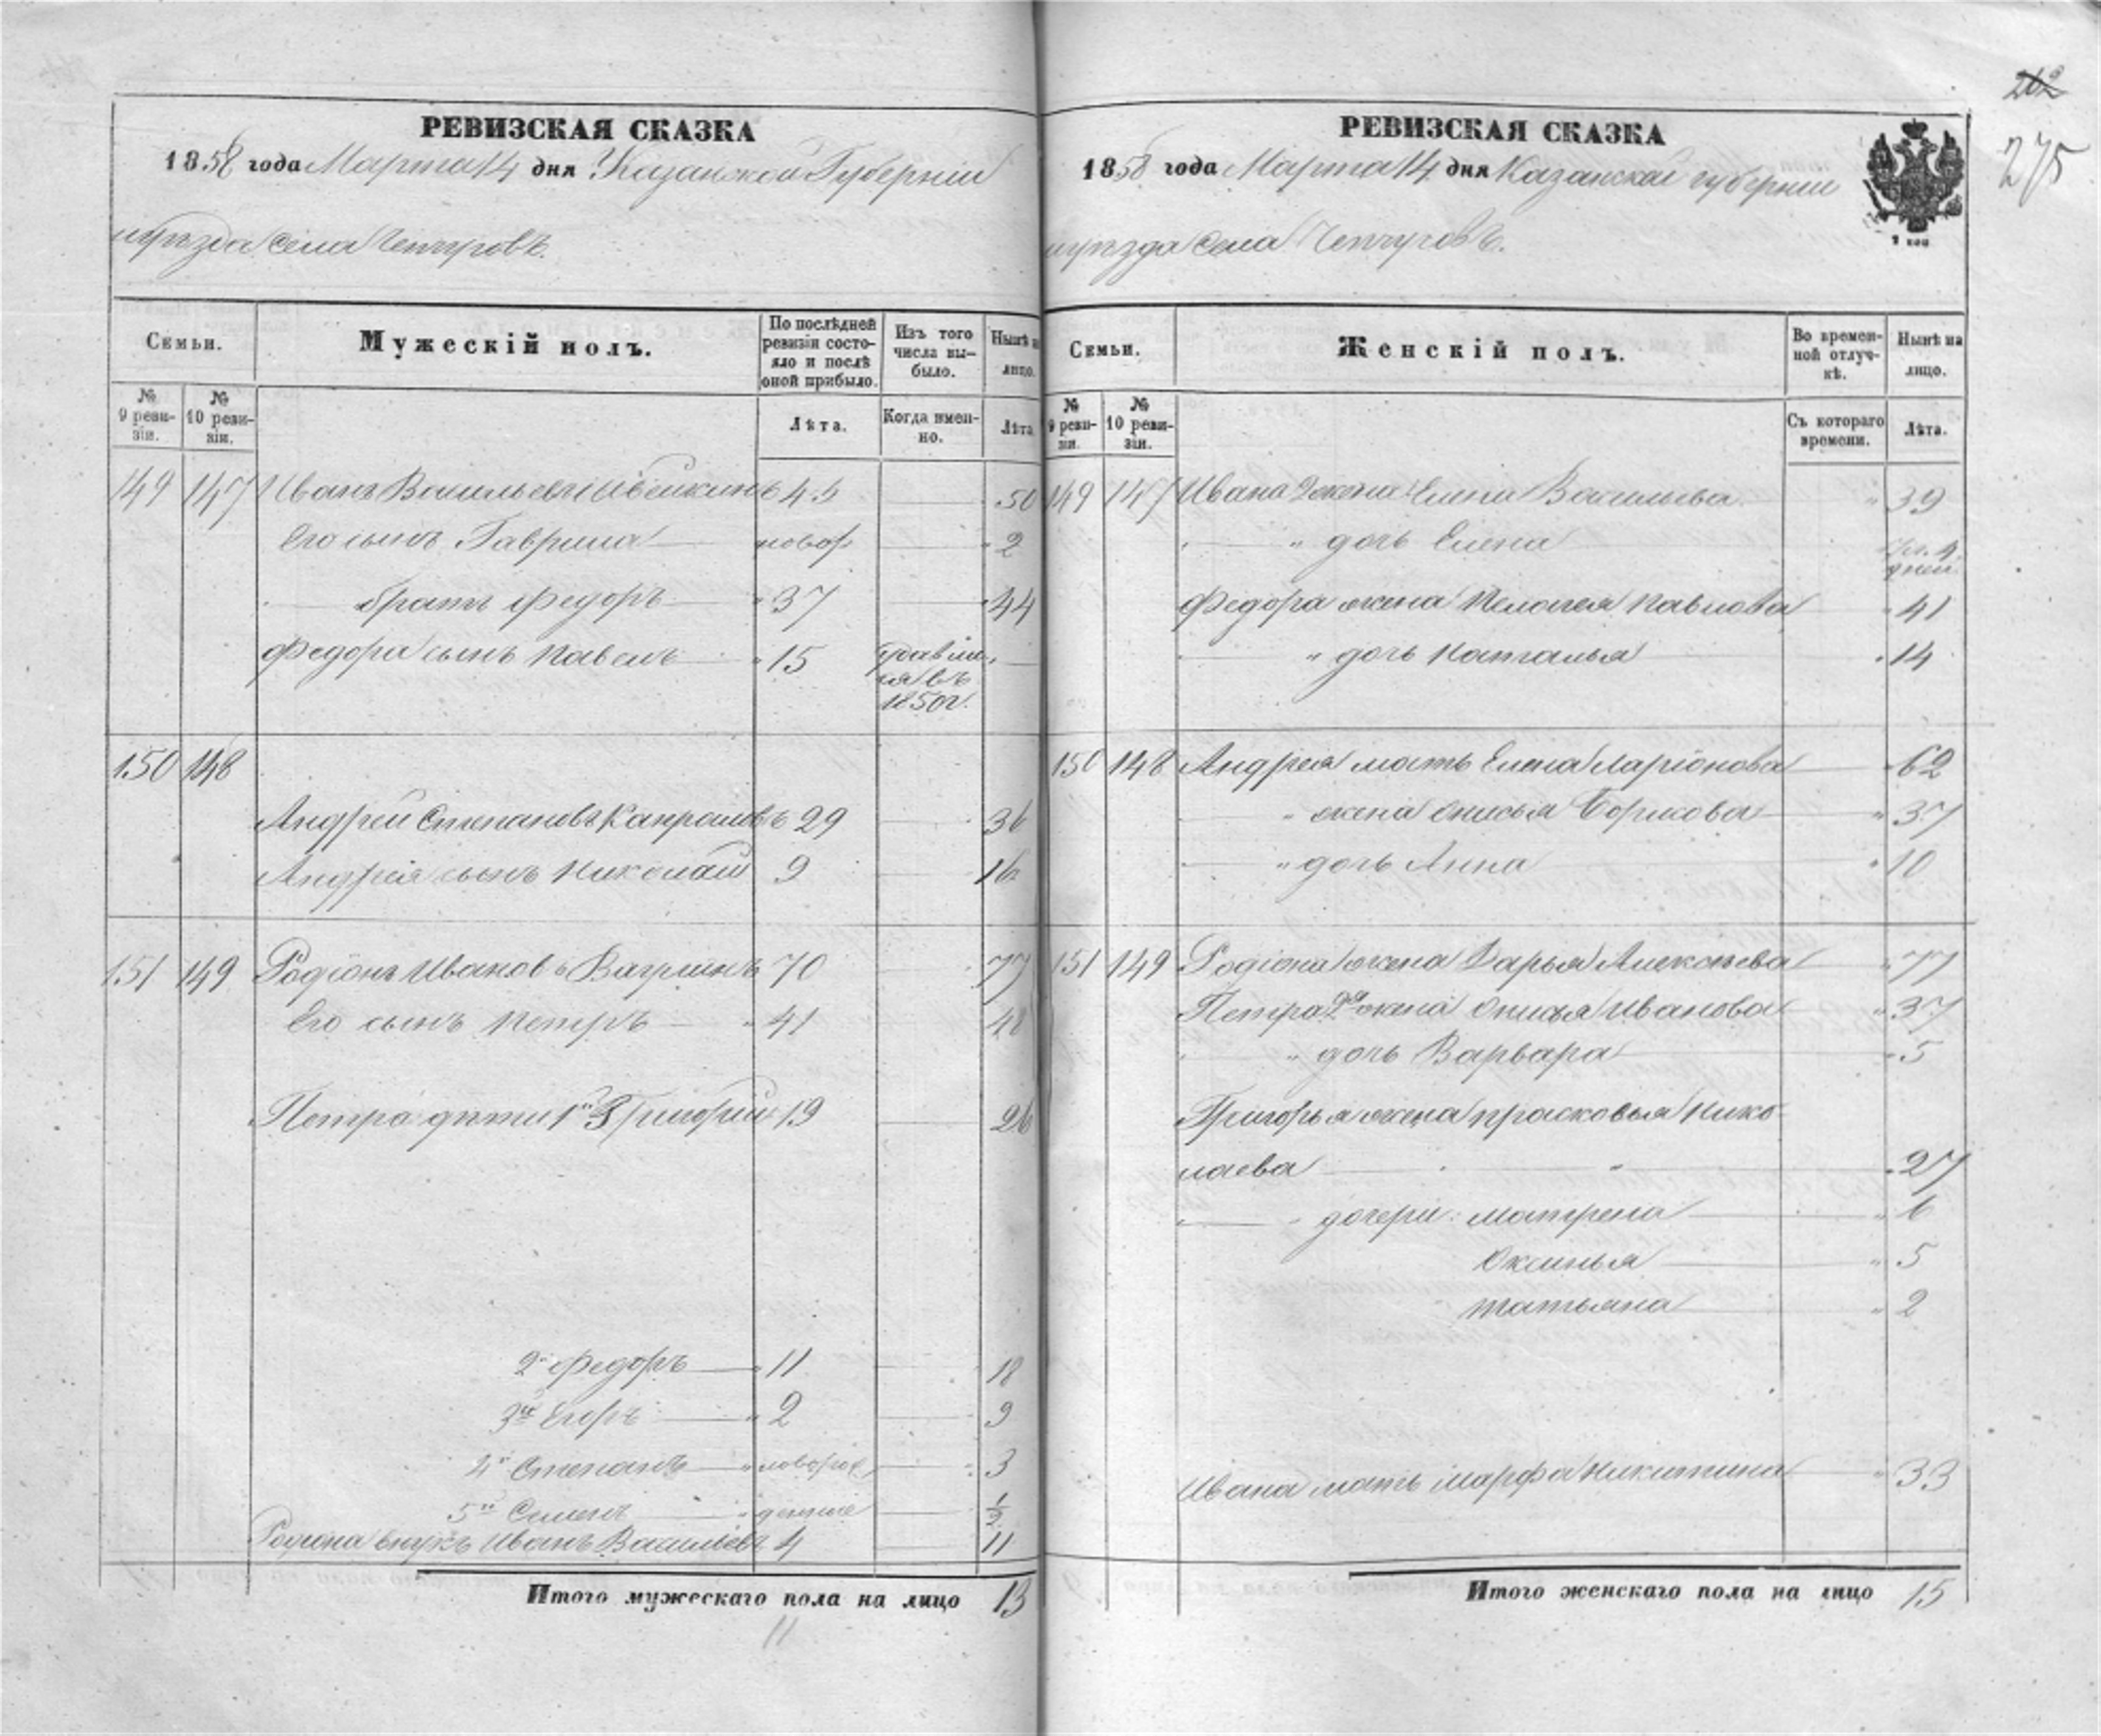 РЕВИЗСКАЯ СКАЗКА
1858 года Марта 14 дня Казанской Губерніи
уѣзда села Чепчуговъ.
Семьи.
Мужескій полъ.
По послѣдней ревизіи состо-
яло и послѣ оной прибыло.
Изъ того числа вы-
было.
Нынѣ на лицо.
№ 9 реви-
зіи.
№ 10 реви-
зіи.
Лѣта.
Когда имен-
но.
Лѣта
149 147 Иванъ Васильевъ 43 50
Его сынъ Гаврила новор 2
братъ Федоръ 37 44
Федора сынъ Павелъ 15
въ
1850 г.
150 148
Андрей Степановъ 29 36
Андрея сынъ Николай 9 16
151 149 Родіонъ Ивановъ 70 77
Его сынъ Петръ 41 48
Петра дѣти 1й Григорій 19 26
2й Федоръ 11 18
3й Егоръ 2 9
4й Степанъ новорож 3
5й Семенъ тоже 1/2
Родіона внукъ Иванъ Васильевъ 4 11
Итого мужескаго пола на лицо 13
11
262
275
РЕВИЗСКАЯ СКАЗКА
1858 года Марта 14 дня Казанской губерніи
1 коп
уѣзда села Чепчуговъ.
Семьи.
Женскій полъ.
Во времен-
ной отлуч-
кѣ.
Нынѣ на лицо.
№ 9 реви-
зіи.
№ 10 реви-
зіи.
Съ котораго времени.
Лѣта.
149 147 Ивана жена Елена Васильева 39
" дочь Елена
дней
Федора жена Пелагея Павлова 41
" дочь Наталья 14
150 148 Андрея мать Елена Ларіонова 62
" жена Анисья Борисова 37
" дочь Анна 10
151 149 Родіона жена Дарья Алексѣева 77
Петра 2я жена Анисья Иванова 37
" дочь Варвара 5
Григорья жена Прасковья Нико-
лаева 27
" дочери: Матрена 6
Оксинья 5
Татьяна 2
Ивана мать Марфа Никитина 33
Итого женскаго пола на лицо 15